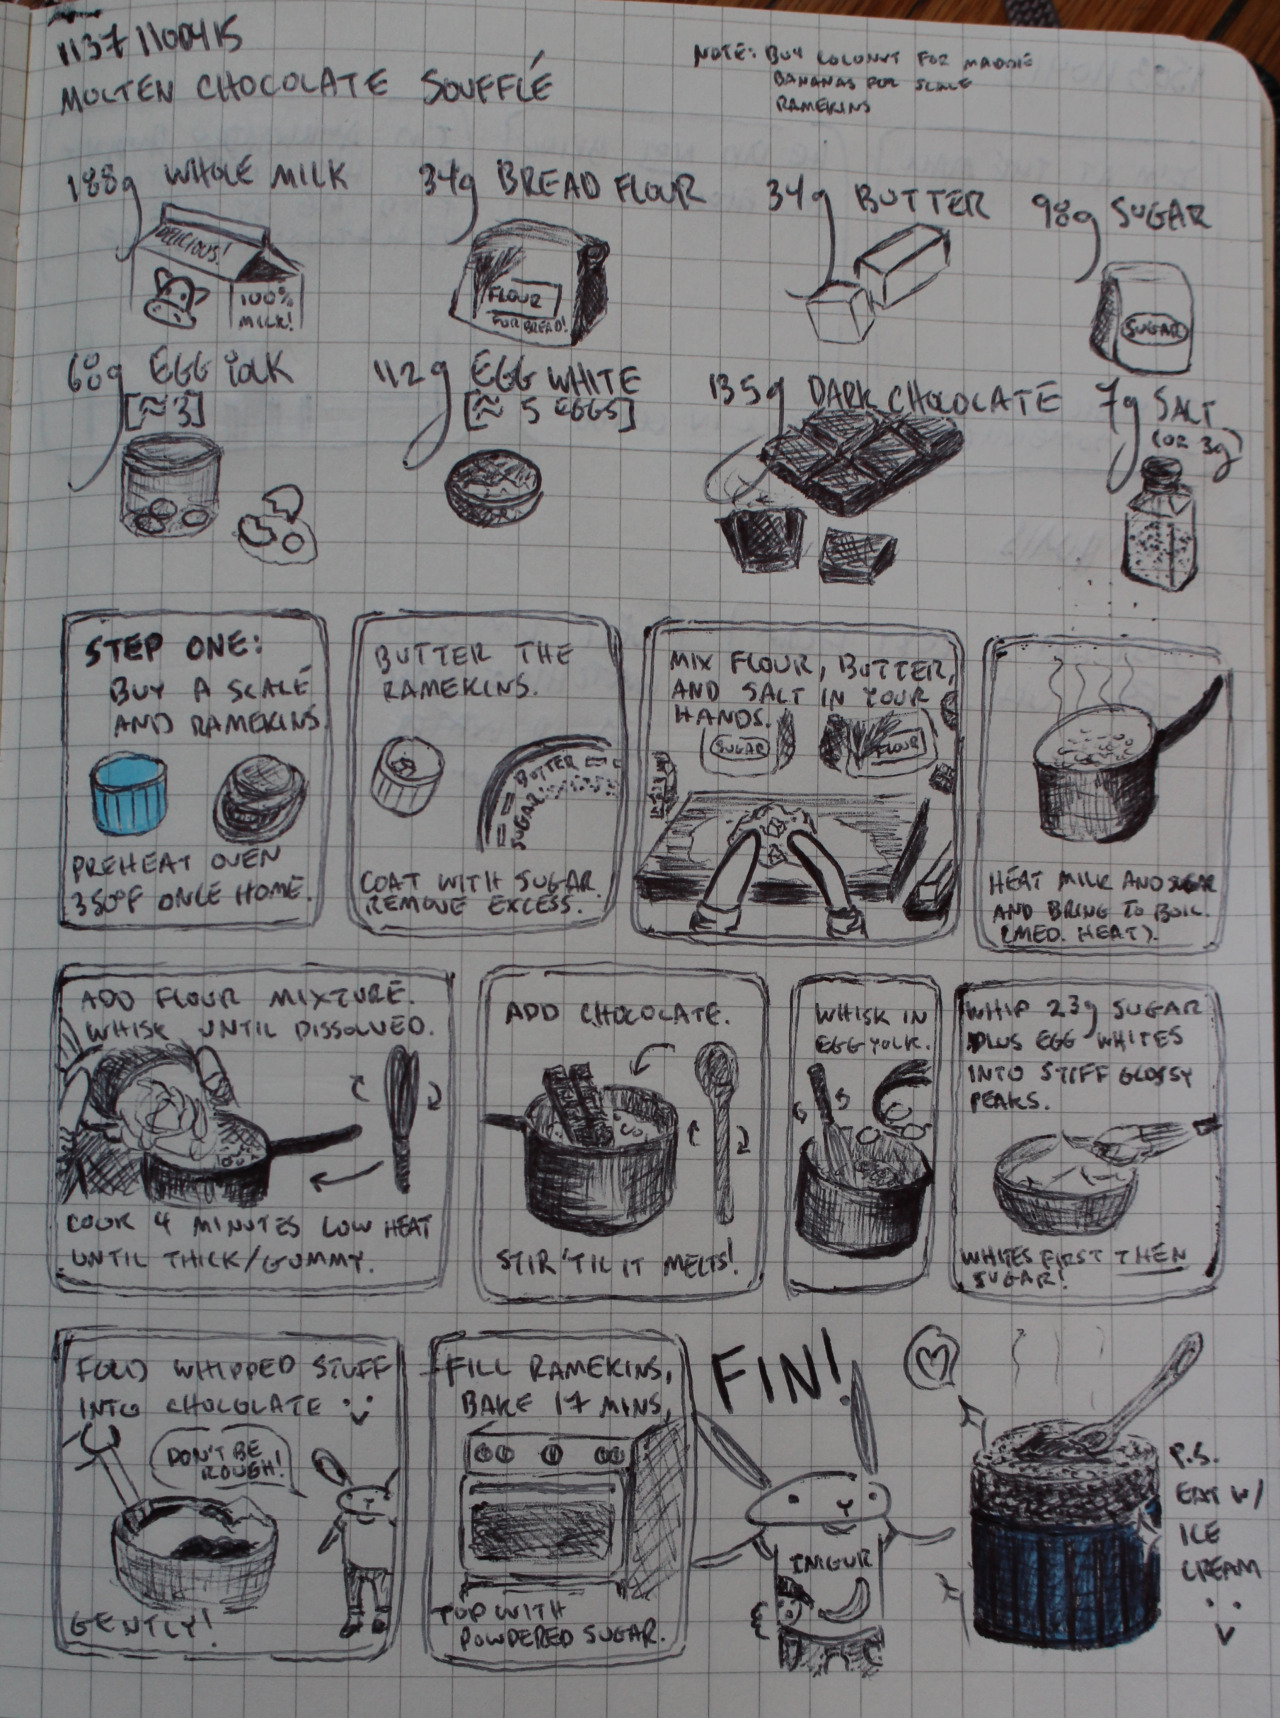 11371100415
MOLTEN CHOCOLATE SOUFFLÉ
NOTE: BUY COCONUT FOR MADDIE
BANANAS FOR SCALE
RAMEKINS
188g WHOLE MILK
DELICIOUS!
100%
MILK!
34g BREAD FLOUR
FLOUR
FOR BREAD!
34g BUTTER
98g SUGAR
SUGAR
60g EGG YOLK
[≈ 3]
112g EGG WHITE
[≈ 5 EGGS]
135g DARK CHOCOLATE
7g SALT
(OR 3g)
STEP ONE:
BUY A SCALE
AND RAMEKINS
PREHEAT OVEN
350°F ONCE HOME.
BUTTER THE
RAMEKINS.
BUTTER
SUGAR
COAT WITH SUGAR
REMOVE EXCESS.
MIX FLOUR, BUTTER,
AND SALT IN YOUR
HANDS.
SUGAR
FLOUR
HEAT MILK AND SUGAR
AND BRING TO BOIL.
(MED. HEAT).
ADD FLOUR MIXTURE.
WHISK UNTIL DISSOLVED.
COOK 4 MINUTES LOW HEAT
UNTIL THICK/GUMMY.
ADD CHOCOLATE.
STIR 'TIL IT MELTS!
WHISK IN
EGG YOLK.
WHIP 23g SUGAR
PLUS EGG WHITES
INTO STIFF GLOSSY
PEAKS.
WHITES FIRST THEN
SUGAR!
FOLD WHIPPED STUFF
INTO CHOCOLATE
DON'T BE
ROUGH!
GENTLY!
FILL RAMEKINS,
BAKE 17 MINS,
TOP WITH
POWDERED SUGAR.
FIN!
IMGUR
P.S.
EAT W/
ICE
CREAM